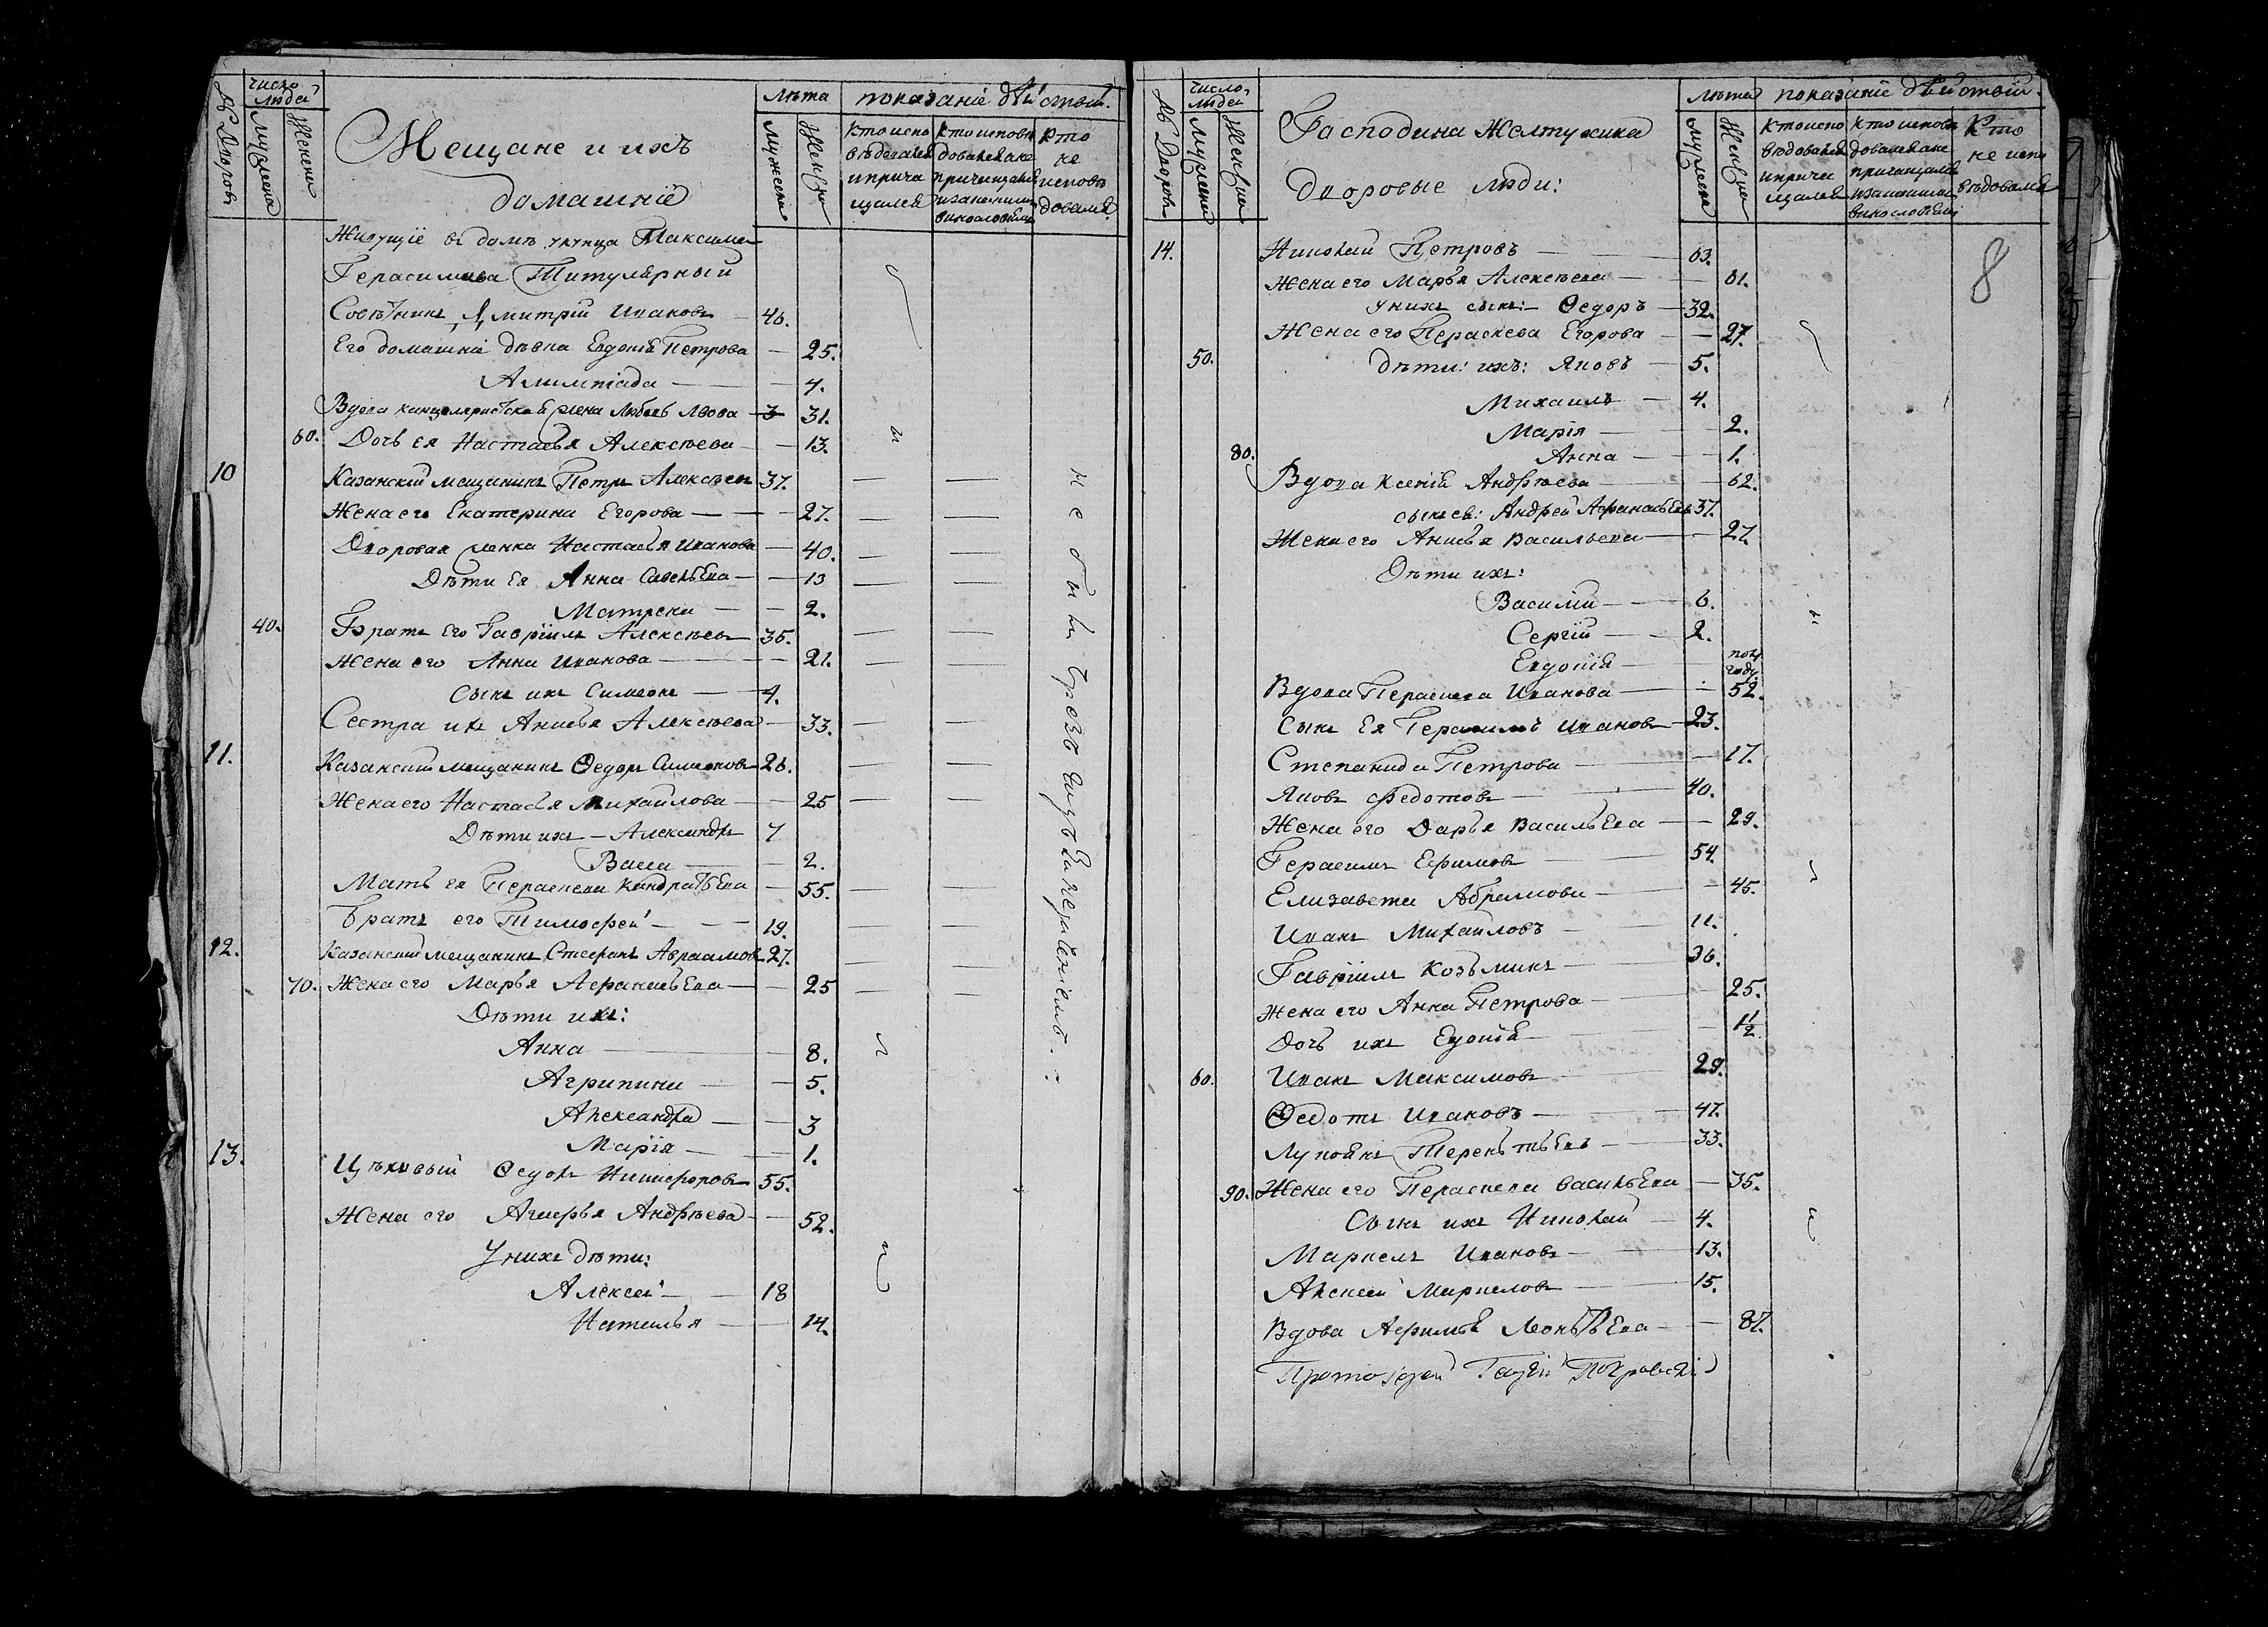 № Дворовъ
число людей
Мужеска
Женски
Мещане и ихъ
домашніе
лѣта
Мужеска
Женска
показаніе дѣйствій.
кто испо
вѣдовался
и прича
щался
кто исповѣ
довался а не
причащался
и за какимъ
винословіемъ
кто
не
исповѣ
довался
Живущіе въ домѣ купца Максима
Герасимова Титулярный
Совѣтникъ Дмитрій Ивановъ — 46.
Его домашніе дѣвка Евдокія Петрова — 25.
Алимпіада — 4.
Вдова канцеляристская жена Любовь Львова — 31.
60. Дочь ея Настасья Алексѣева — 13.
10 Казанскій мещанинъ Петръ Алексѣевъ 37. — —
Жена его Екатерина Егорова — 27. — —
Дворовая женка Настасья Иванова — 40. — —
Дѣти ея Анна Савельева — 13 — —
Матрена — 2.
40. Братъ его Гавріилъ Алексѣевъ 35. — —
Жена его Анна Иванова — 21. — —
Сынъ ихъ Симеонъ — 4.
Сестра ихъ Анисья Алексѣева — 33. — —
11. Казанскій мещанинъ Ѳедоръ Симеоновъ 26. — —
Жена его Настасья Михайлова — 25 — —
Дѣти ихъ — Александръ 7
Васса — 2.
Мать ея Параскева Кандратьева — 55. — —
Братъ его Тимофей — 19. — —
12. Казанскій мещанинъ Стефанъ Авраамовъ 27. — —
70. Жена его Марья Афанасьева — 25 — —
Дѣти ихъ:
Анна — 8.
Агрипина — 5.
Александра — 3
Марія — 1.
13. Цѣховый Ѳедоръ Никифоровъ 55.
Жена его Агафья Андрѣева — 52.
У нихъ дѣти:
Алексей — 18
Наталья — 14.
не были
№ Дворовъ
число людей
Мужеска
Женска
Господина Желтухина
Дворовые люди:
лѣта
Мужеска
Женска
показаніе дѣйствій.
кто испо
вѣдовался
и прича
щался
кто исповѣ
довался а не
причащался
и за какимъ
винословіемъ
Кто
не испо
вѣдовался
8
14. Николай Петровъ — 63.
Жена его Марья Алексѣева — 61.
У нихъ сынъ: Ѳедоръ — 32.
Жена его Параскева Егорова — 27.
50. Дѣти: ихъ: Яковъ — 5.
Михаилъ — 4.
Марія — 2.
80. Анна — 1.
Вдова Ксенія Андрѣева — 62.
сынъ ея: Андрей Афанасьевъ 37.
Жена его Анисья Васильева — 27.
Дѣти ихъ:
Василій — 6.
Сергій — 2.
Евдокія — пол годъ
Вдова Параскева Иванова — 52.
Сынъ Ея Герасимъ Ивановъ — 23.
Степанида Петрова — 17.
Яковъ Федотовъ — 40.
Жена его Дарья Васильева — 29.
Герасимъ Ефимовъ — 54.
Елизавета Абрамова — 45.
Иванъ Михайловъ — 11.
Гавріилъ Козьминъ — 36.
Жена его Анна Петрова — 25.
Дочь ихъ Евдокія — 1 1/2
60. Иванъ Максимовъ — 29.
Ѳедотъ Ивановъ — 47.
Лукоянъ Терентьевъ — 33.
90. Жена его Параскева Васильева — 35.
Сынъ ихъ Николай — 4.
Маркелъ Ивановъ — 13.
Алексей Маркеловъ — 15.
Вдова Афимья Леонтьева — 87.
Протоіерей Покровскій